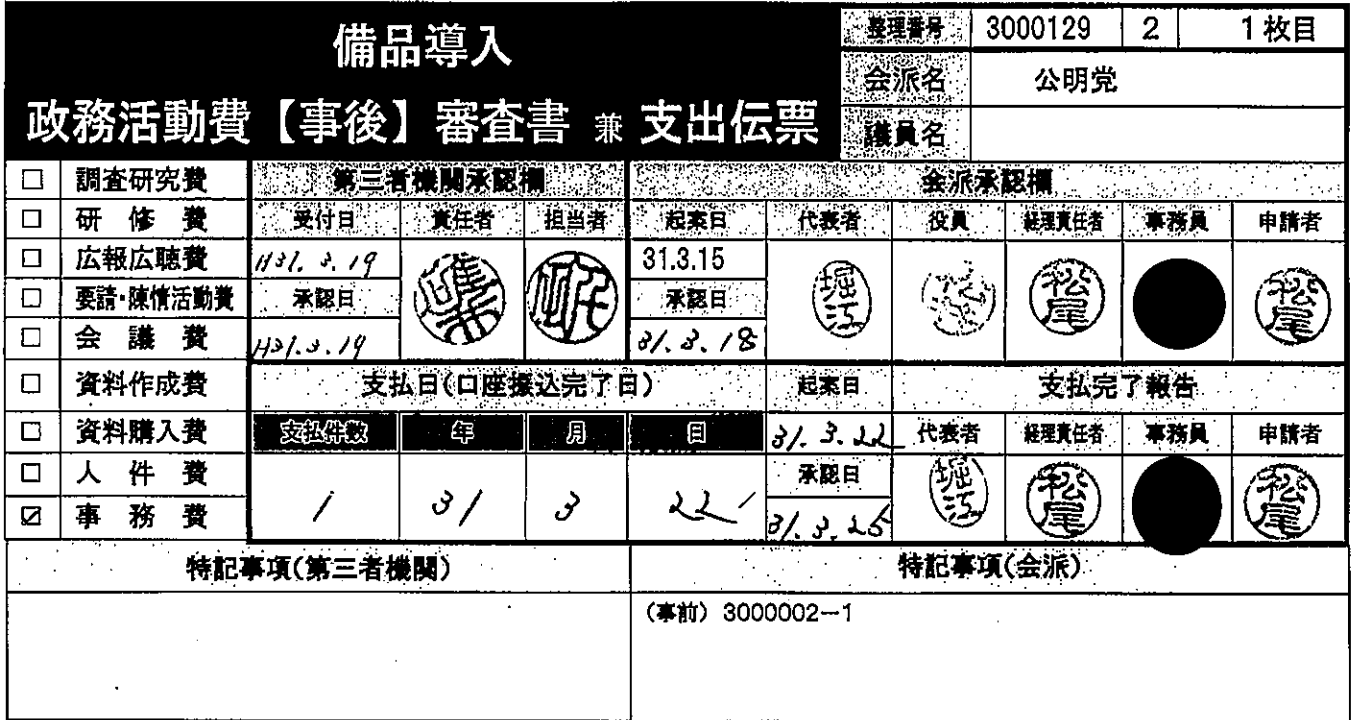 備品導入
政務活動費【事後】審査書 兼 支出伝票
整理番号 3000129 2 1枚目
会派名 公明党
議員名
□ 調査研究費
□ 研修費
□ 広報広聴費
□ 要請・陳情活動費
□ 会議費
□ 資料作成費
□ 資料購入費
□ 人件費
☑ 事務費
第三者機関承認欄
受付日 責任者 担当者
H31.3.19
承認日
H31.3.19
会派承認欄
起案日 代表者 役員 経理責任者 事務員 申請者
31.3.15
堀江 松尾 松尾
承認日
31.3.18
支払日(口座振込完了日)
支払件数 年 月 日
1 31 3 22
起案日
31.3.22
承認日
31.3.25
支払完了報告
代表者 経理責任者 事務員 申請者
堀江 松尾 松尾
特記事項(第三者機関)
特記事項(会派)
(事前) 3000002-1